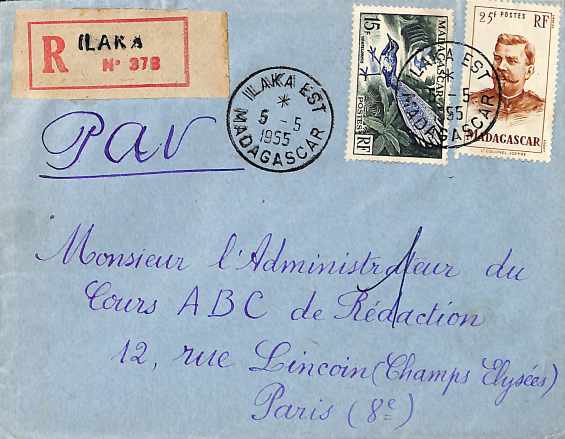 R ILAKA
N° 378
ILAKA EST
5 - 5
1955
MADAGASCAR
15F
MADAGASCAR
POSTES
RF
ILAKA EST
5
55
MADAGASCAR
25F POSTES RF
MADAGASCAR
Lt COLONEL JOFFRE
Pav
Monsieur l'Administrateur du
Cours ABC de Rédaction
12, rue Lincoin (Champs Elysées)
Paris (8e)